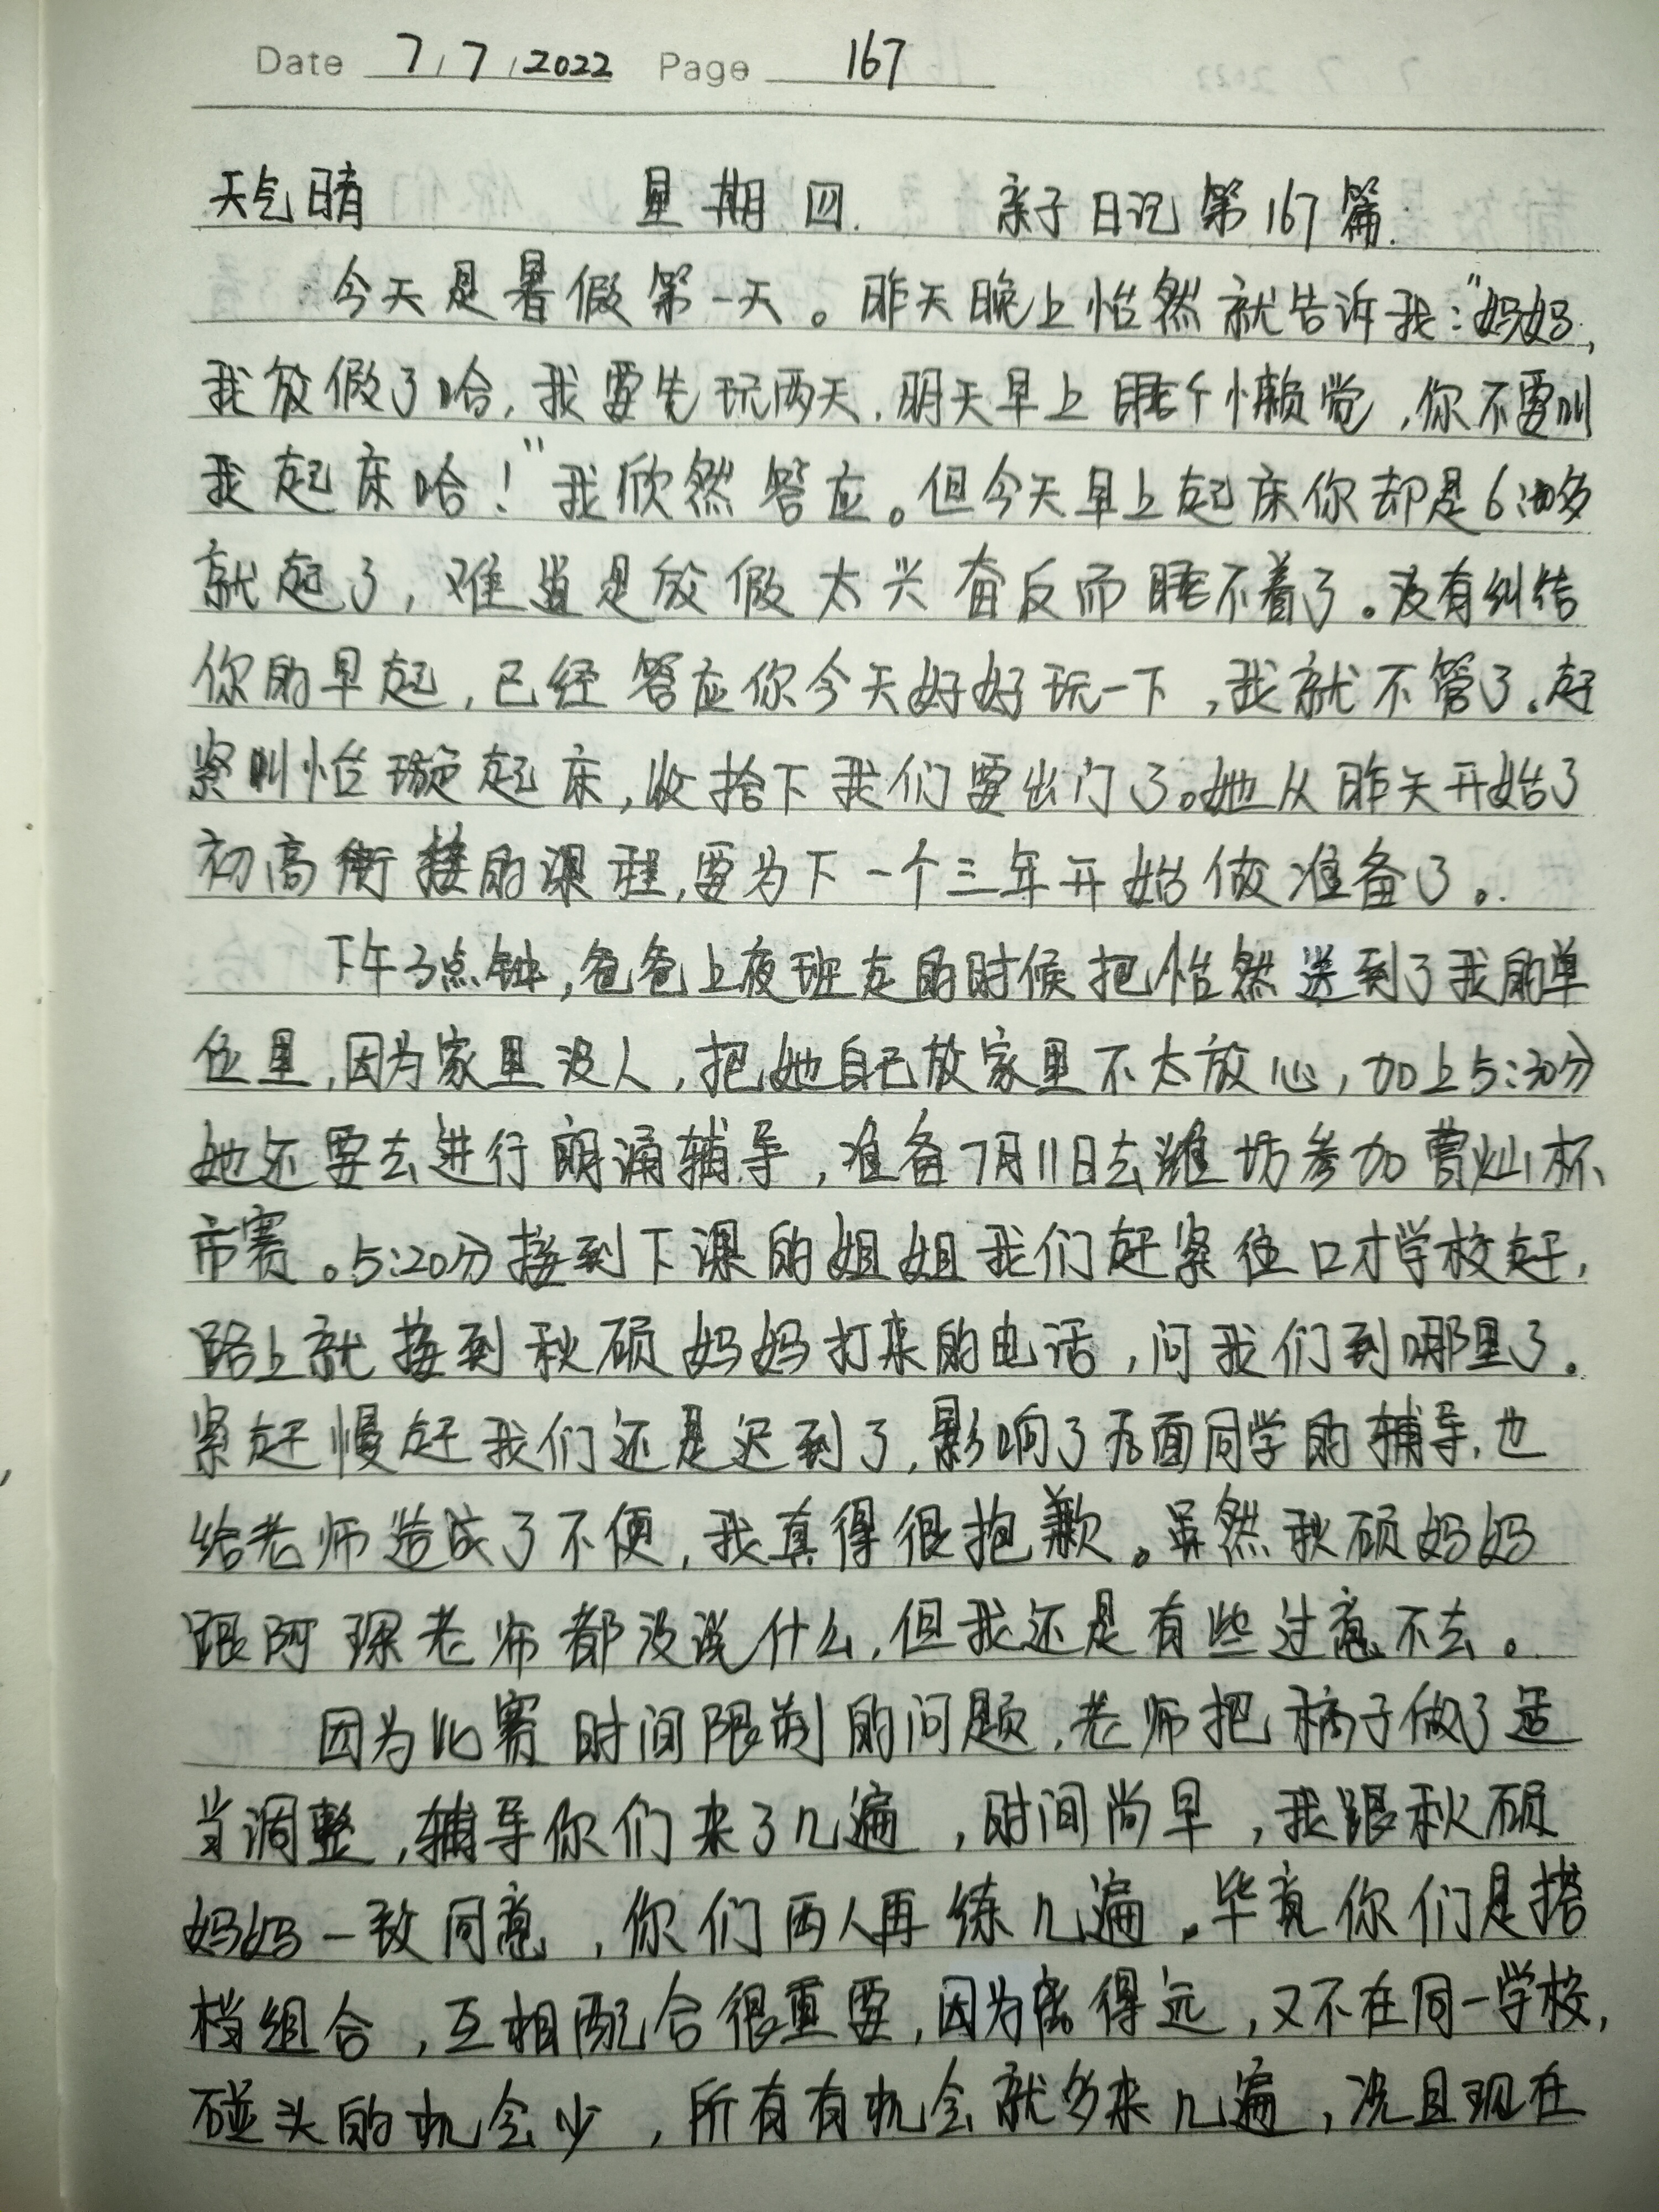 Date 7/7/2022 Page 167
天气晴 星期四. 亲子日记第167篇.
今天是暑假第一天。昨天晚上怡然就告诉我:"妈妈,
我放假了哈,我要先玩两天,明天早上睡个懒觉,你不要叫
我起床哈!"我欣然答应。但今天早上起床你却是6:00多
就起了,难道是放假太兴奋反而睡不着了。没有纠结
你的早起,已经答应你今天好好玩一下,我就不管了。赶
紧叫怡璇起床,收拾下我们要出门了。她从昨天开始了
初高衔接的课程,要为下一个三年开始做准备了。
下午3点钟,爸爸上夜班走的时候把怡然送到了我的单
位里,因为家里没人,把她自己放家里不太放心,加上5:30分
她还要去进行朗诵辅导,准备7月11日去潍坊参加曹灿杯
市赛。5:20分接到下课的姐姐我们赶紧往口才学校赶,
路上就接到秋硕妈妈打来的电话,问我们到哪里了。
紧赶慢赶我们还是迟到了,影响了后面同学的辅导,也
给老师造成了不便,我真得很抱歉。虽然秋硕妈妈
跟阿琛老师都没说什么,但我还是有些过意不去。
因为比赛时间限制的问题,老师把稿子做了适
当调整,辅导你们来了几遍,时间尚早,我跟秋硕
妈妈一致同意,你们两人再练几遍。毕竟你们是搭
档组合,互相配合很重要,因为离得远,又不在同一学校,
碰头的机会少,所有有机会就多来几遍,况且现在